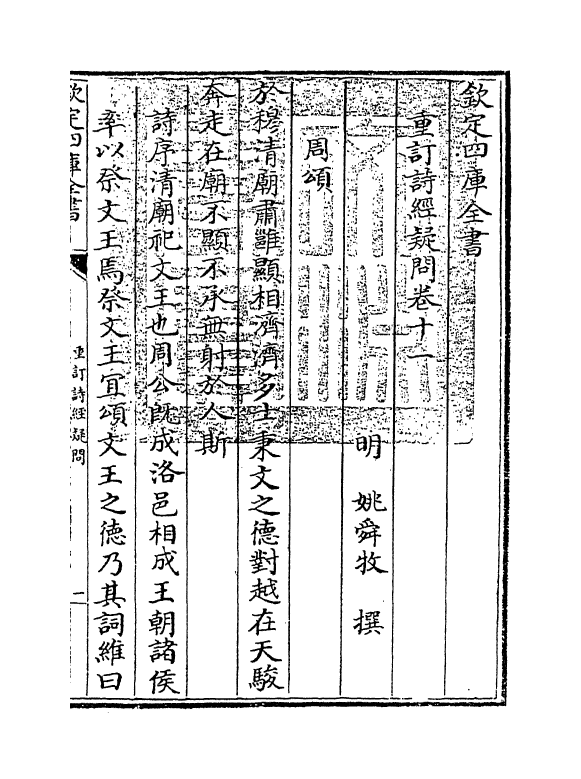 欽定四庫全書
重訂詩經疑問卷十一
明 姚舜牧 撰
周頌
於穆清廟肅雝顯相濟濟多士秉文之德對越在天駿
奔走在廟不顯不承無射於人斯
詩序清廟祀文王也周公既成洛邑相成王朝諸侯
率以祭文王焉祭文王宜頌文王之德乃其詞維曰
欽定四庫全書
重訂詩經疑問